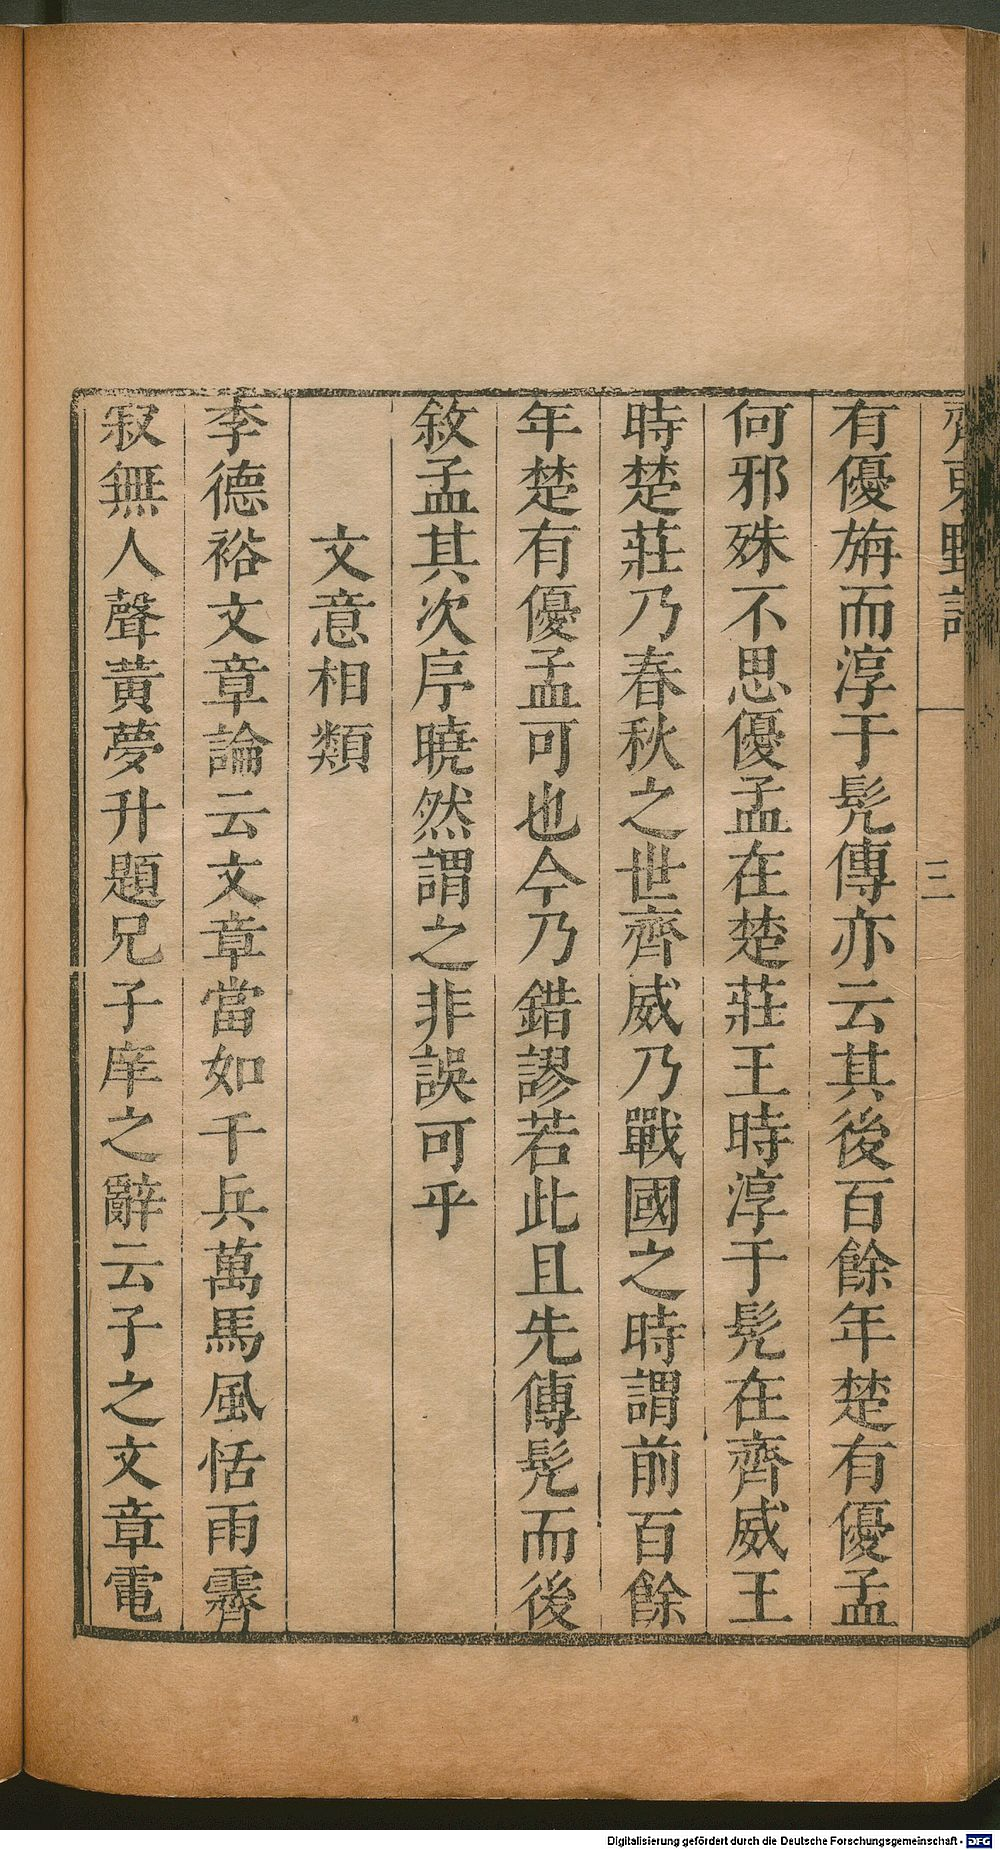 齊東野語
三
有優旃而淳于髠傳亦云其後百餘年楚有優孟
何邪殊不思優孟在楚莊王時淳于髠在齊威王
時楚莊乃春秋之世齊威乃戰國之時謂前百餘
年楚有優孟可也今乃錯謬若此且先傳髠而後
敘孟其次序曉然謂之非誤可乎
文意相類
李德裕文章論云文章當如千兵萬馬風恬雨霽
寂無人聲黃夢升題兄子庠之辭云子之文章電
Digitalisierung gefördert durch die Deutsche Forschungsgemeinschaft - DFG